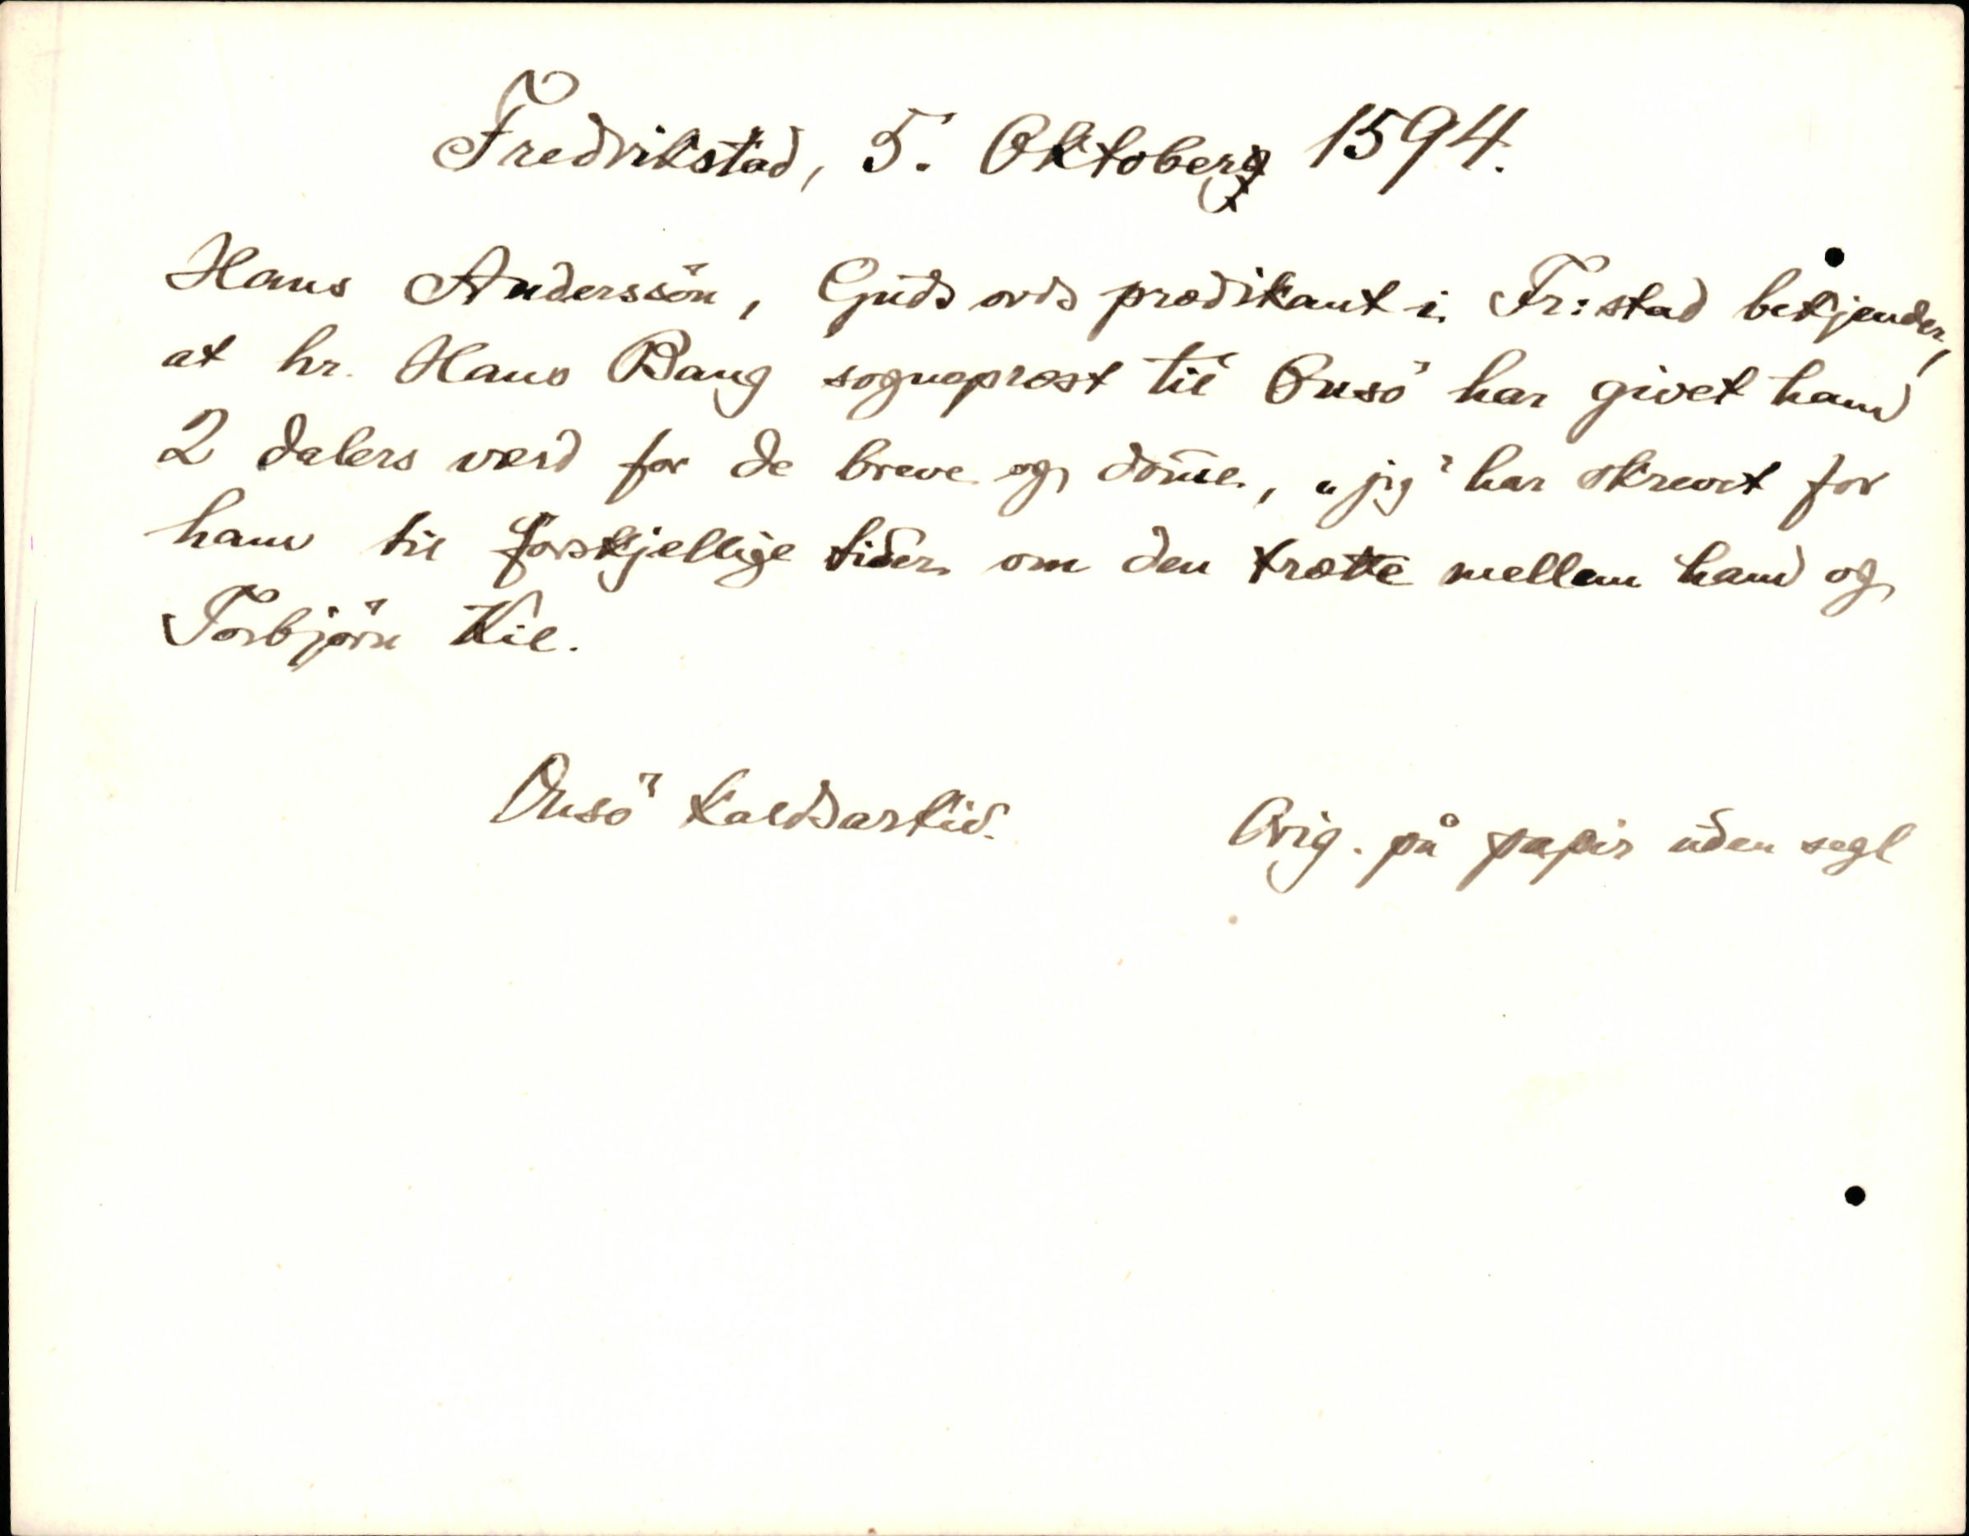 Fredrikstad, 5. Oktober 1594.
Hans Anderssön, Guds ords prædikant i Fr:stad bekjender,
at hr. Hans Bang sogneprest til Onsö har givet ham
2 dalers værd for de breve og domme, "jeg" har skrevet for
ham til forskjellige tider om den trætte mellem ham og
Torbjörn Kil.
Onsö kaldsarkiv. Orig. på papir uden segl